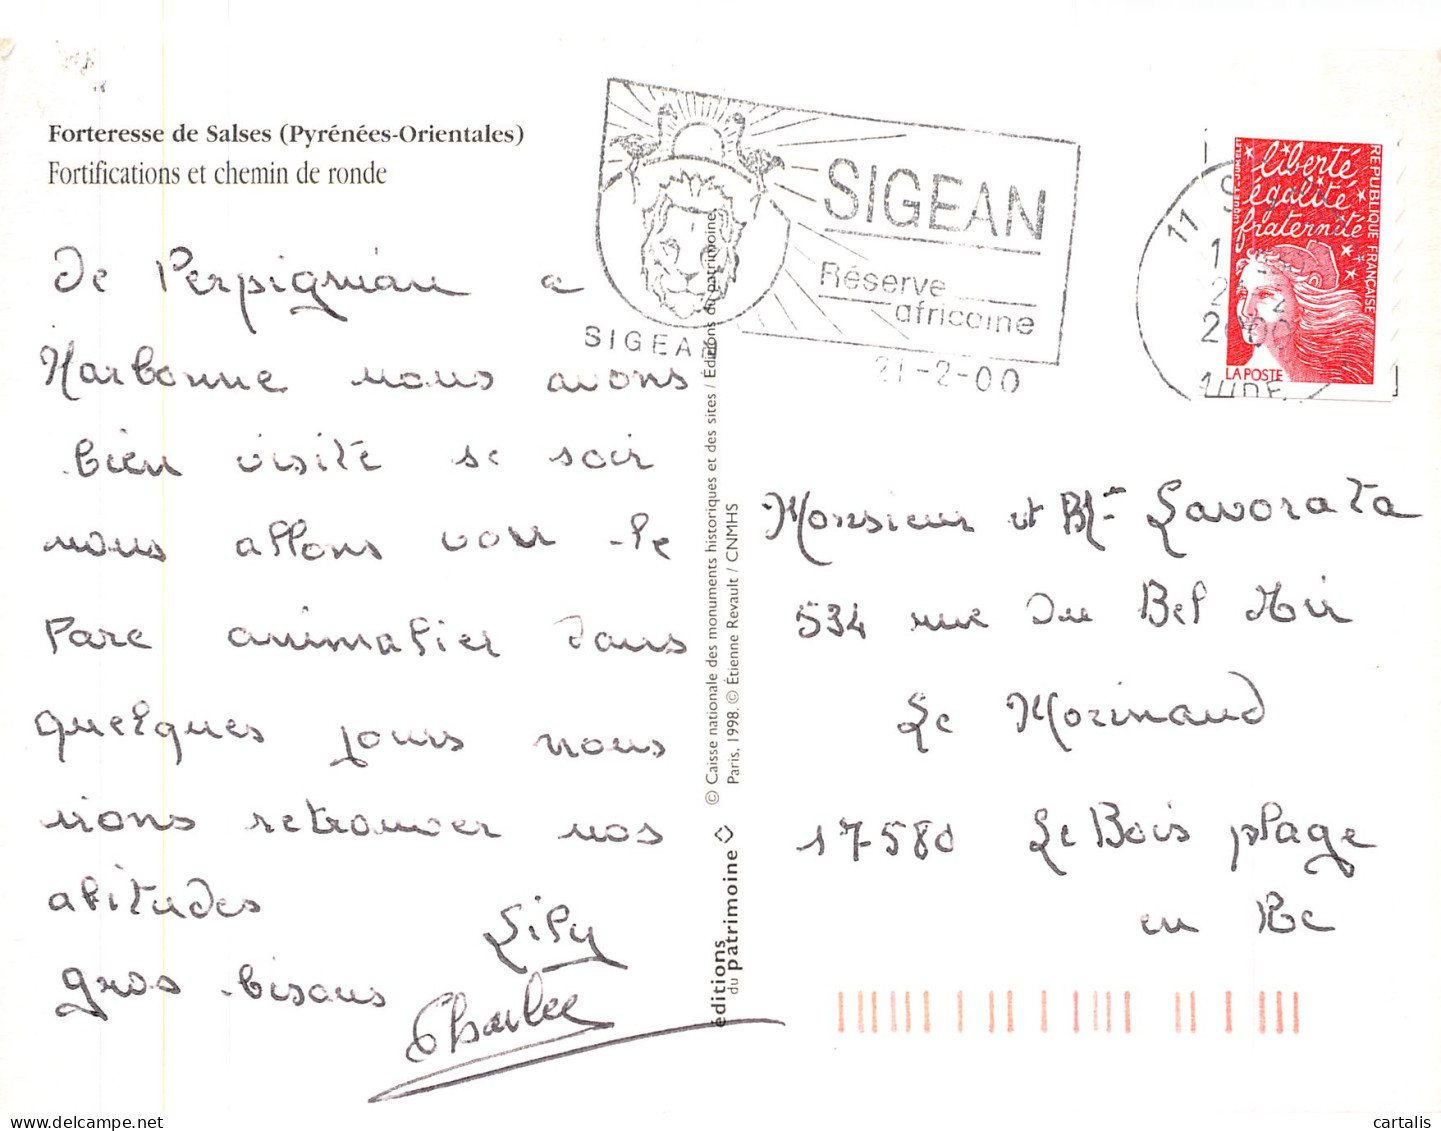 Forteresse de Salses (Pyrénées-Orientales)
Fortifications et chemin de ronde
De Perpignan a
Narbonne nous avons
bien visité se soir
nous allons voir le
Parc animalier dans
quelques jours nous
irons retrouver nos
abitudes
gros bisous
Lily
Charlee
SIGEAN
SIGEAN
Réserve
africaine
21-2-00
11
2000
AUDE
liberté
égalité
fraternité
REPUBLIQUE FRANÇAISE
LA POSTE
© Caisse nationale des monuments historiques et des sites / Éditions du patrimoine,
Paris, 1998. © Étienne Revault / CNMHS
éditions
du patrimoine
Monsieur et Me Lavorata
534 rue Du Bel Air
Le Morinaud
17580 Le Bois plage
en Re
cartalis